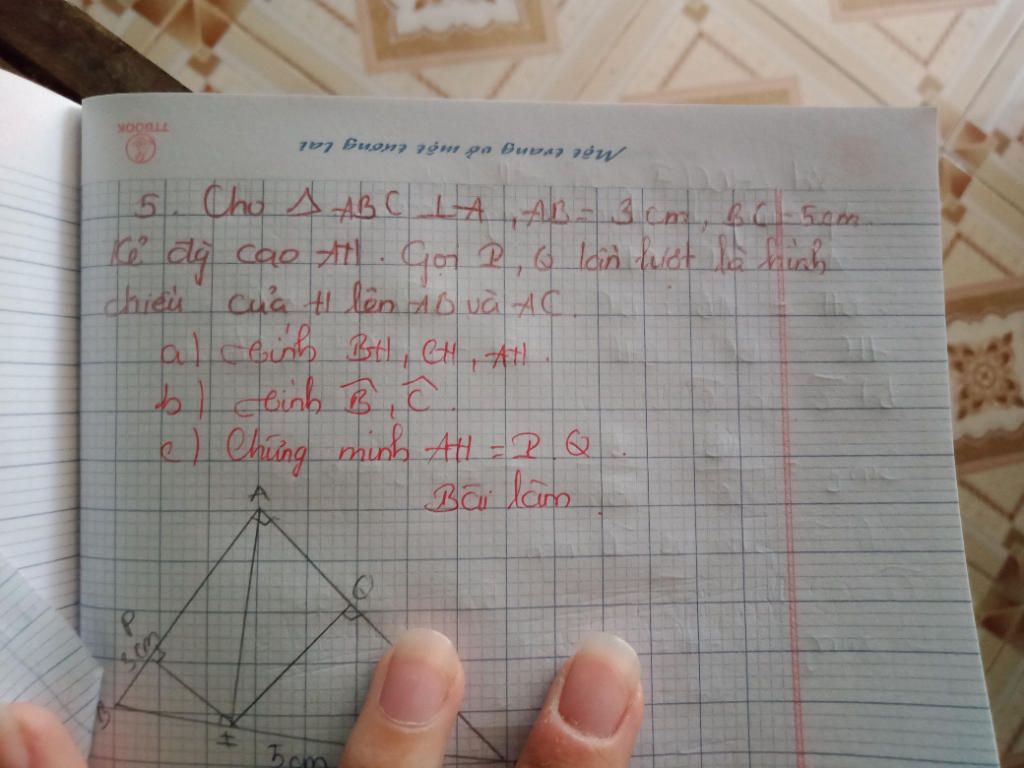 TTBOOK
Một trang vở một tương lai
5. Cho Δ ABC ⊥ A, AB = 3 cm, BC = 5cm.
Kẻ đg cao AH. Gọi P, Q lần lượt là hình
chiếu của H lên AB và AC.
a) tính BH, CH, AH.
b) tính B̂, Ĉ.
c) Chứng minh AH = P Q.
Bài làm.
A
Q
P
3cm
B
H
5cm